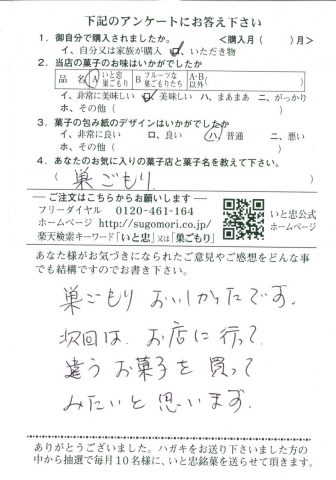 下記のアンケートにお答え下さい
1. 御自分で購入されましたか。 <購入月( )月>
イ、自分又は家族が購入 ロ、いただき物
2. 当店の菓子のお味はいかがでしたか
品 名 A いと忠巣ごもり B フルーツな巣ごもりたち A・B以外( )
イ、非常に美味しい ロ、美味しい ハ、まあまあ ニ、がっかり
ホ、その他( )
3. 菓子の包み紙のデザインはいかがでしたか
イ、非常に良い ロ、良い ハ、普通 ニ、悪い
ホ、その他( )
4. あなたのお気に入りの菓子店と菓子名を教えて下さい。
( 巣ごもり )
ご注文はこちらからお願いします
フリーダイヤル 0120-461-164
ホームページ http://sugomori.co.jp/
楽天検索キーワード「いと忠」又は「巣ごもり」
いと忠公式
ホームページ
あなた様がお気づきになられたご意見やご感想をどんな事
でも結構ですのでお書き下さい。
巣ごもり おいしかったです。
次回は、お店に行って、
違うお菓子を買って
みたいと思います。
ありがとうございました。ハガキをお送り下さいました方の
中から抽選で毎月10名様に、いと忠銘菓を送らせて頂きます。